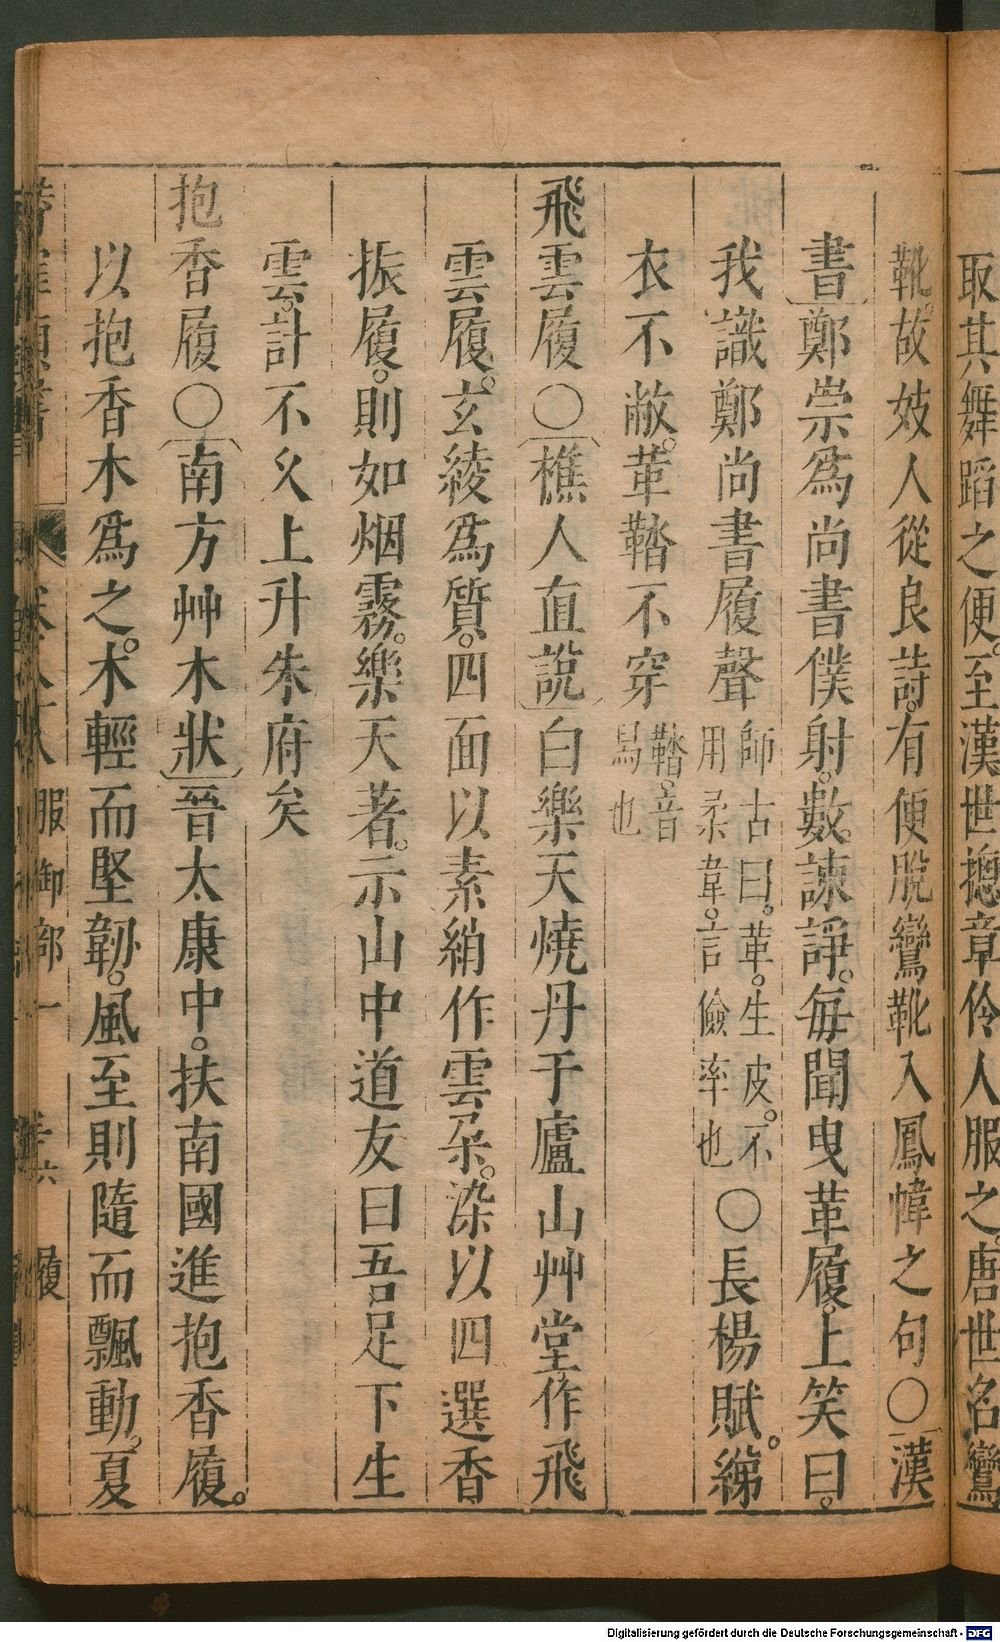 取其舞蹈之便。至漢世摠章伶人服之。唐世名鸞
靴。故妓人從良詩。有便脫鸞靴入鳳幃之句〇漢
書鄭崇爲尚書僕射。數諫諍。每聞曳革履。上笑曰。
我識鄭尚書履聲師古曰。革。生皮。不
用柔韋。言儉率也〇長楊賦。綈
衣不敝。革鞜不穿鞜。音
舄也
飛雲履〇樵人直說白樂天燒丹于廬山艸堂。作飛
雲履。玄綾爲質。四面以素綃作雲朶。染以四選香
振履。則如烟霧。樂天著。示山中道友曰吾足下生
雲。計不久上升朱府矣
抱香履〇南方艸木狀晉太康中。扶南國進抱香履。
以抱香木爲之。木輕而堅韌。風至則隨而飄動。夏
服御部一 履
Digitalisierung gefördert durch die Deutsche Forschungsgemeinschaft - DFG